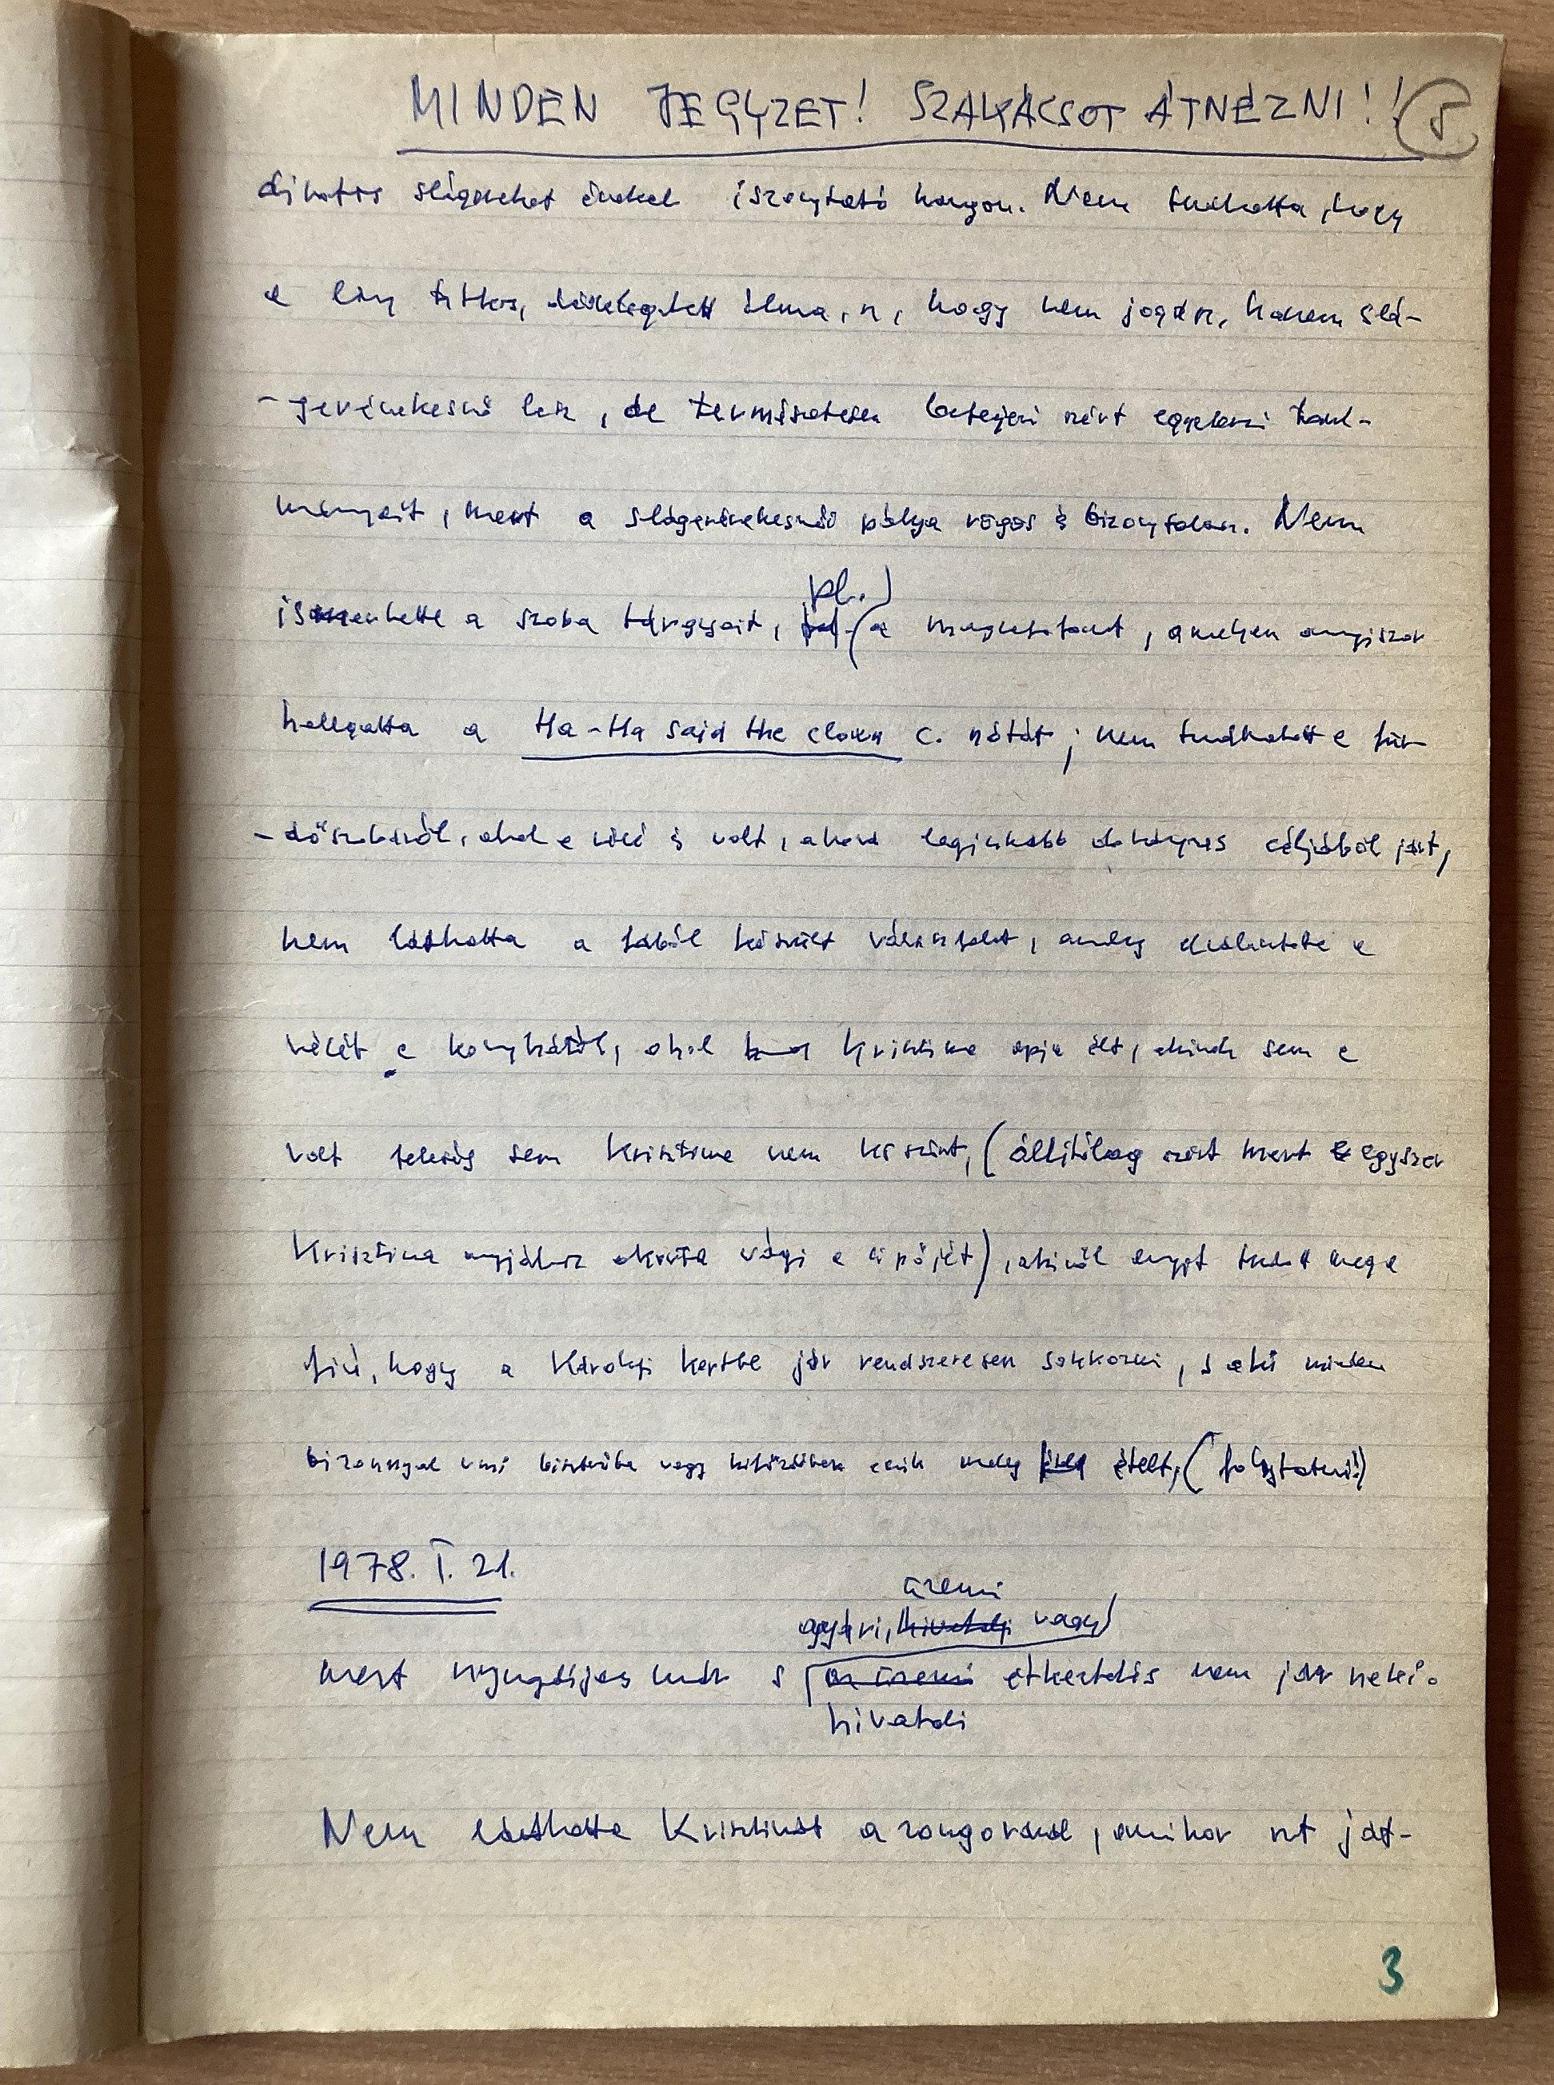 MINDEN JEGYZET! SZAKÁCSOT ÁTNÉZNI!! 5
divatos slágereket énekel iszonytató hangon. Nem tudhatta, hogy
a lány titkos, dédelgetett álma, az, hogy nem jogász, hanem slá-
-gerénekesnő lesz, de természetesen befejezi azért egyetemi tanul-
mányait, mert a slágerénekesnői pálya rögös és bizonytalan. Nem
pl.)
ismerhette a szoba tárgyait, (a magnetofont, amelyen annyiszor
hallgatta a Ha-Ha said the clown c. nótát; nem tudhatott a für-
-dőszobáról, ahol a vécé is volt, ahova leginkább dohányzás céljából járt,
nem láthatta a fából készült válaszfalat, amely elválasztotta a
vécét a konyhától, ahol Krisztina apja élt, akinek sem a
volt feleség sem Krisztina nem köszönt, (állítólag azért mert egyszer
Krisztina anyjához akarta vágni a cipőjét), akiről annyit tudott meg a
fiú, hogy a Károlyi kertbe jár rendszeresen sakkozni, s aki minden
bizonnyal vmi bisztróba vagy kifőzdében eszik meleg ételt, (folytatni!)
1978. I. 21.
üzemi
gyári, hivatali vagy)
mert nyugdíjas már s az üzemi étkeztetés nem jár neki.
hivatali
Nem láthatta Krisztinát a zongoránál, amikor azt ját-
3